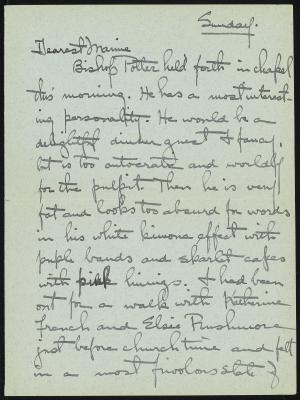 Sunday.
Dearest Mamie
Bishop Potter held forth in chapel
this morning. He has a most interest-
ing personality. He would be a
delightful dinner guest I fancy,
but is too autocratic and worldly
for the pulpit. Then he is very
fat and looks too absurd for words
in his white kimona effect with
purple bands and skarlet capes
with pink linings. I had been
out for a walk with Katherine
French and Elsie Rushmore
just before church time and felt
in a most frivolous state of